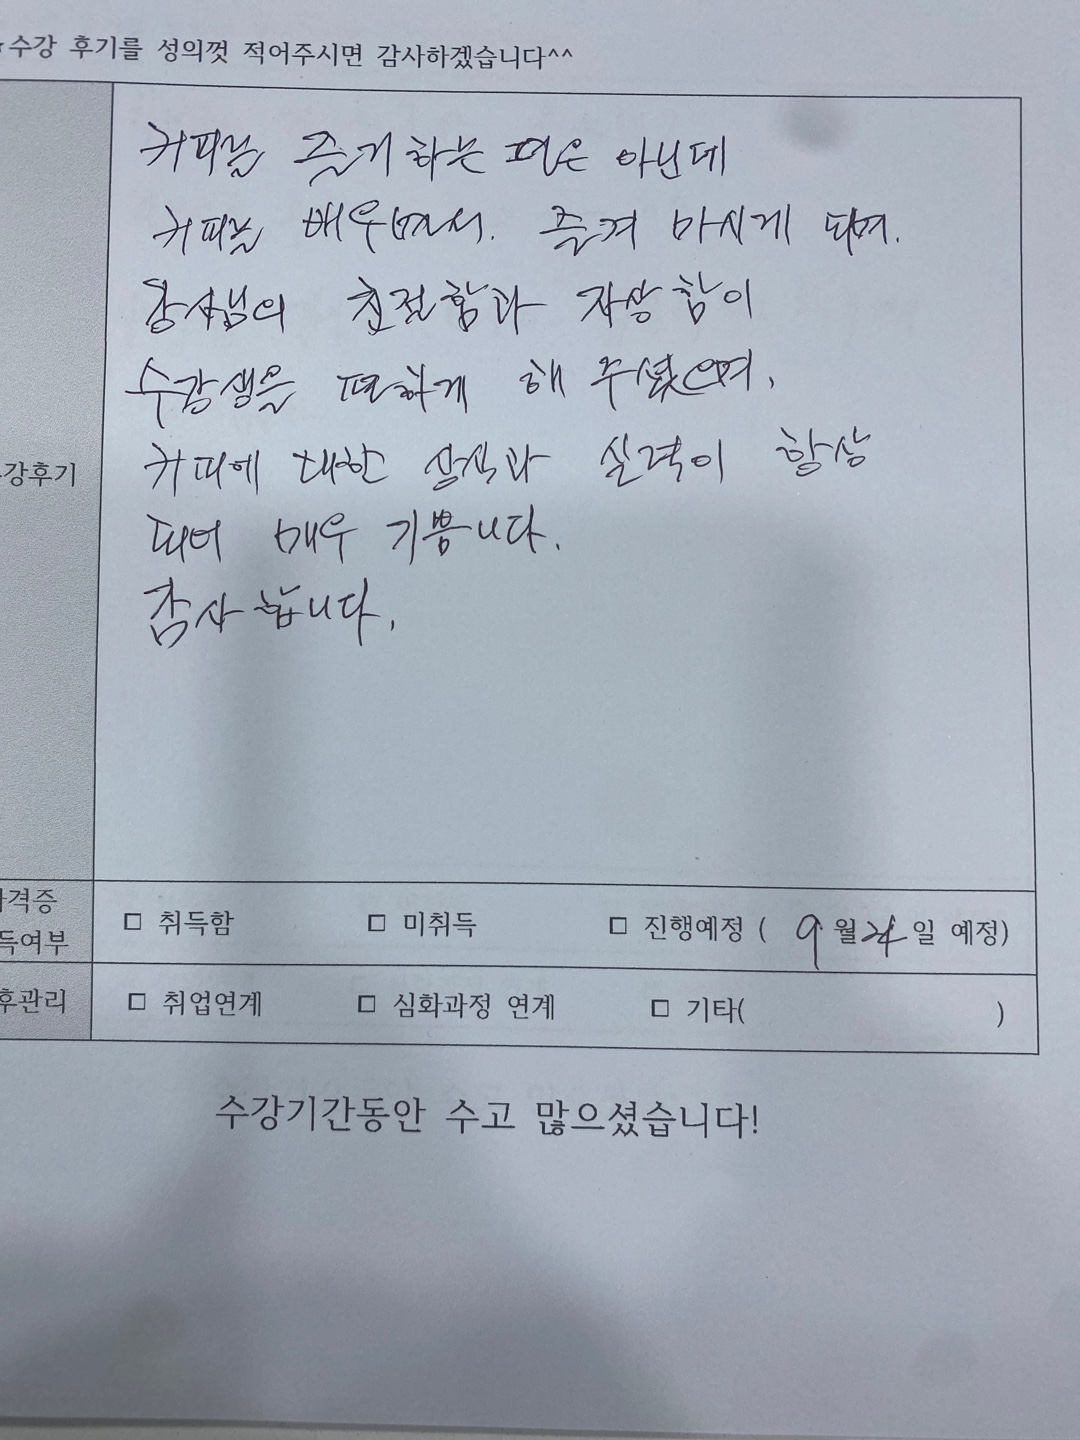 수강 후기를 성의껏 적어주시면 감사하겠습니다^^
커피를 즐겨하는 편은 아닌데
커피를 배우면서. 즐겨 마시게 되며.
강사님의 친절함과 자상함이
수강생을 편하게 해 주셨으며,
강후기
커피에 대한 상식과 실력이 향상
되어 매우 기쁩니다.
감사합니다.
격증
득여부
□ 취득함 □ 미취득 □ 진행예정 ( 9월 24일 예정)
후관리 □ 취업연계 □ 심화과정 연계 □ 기타( )
수강기간동안 수고 많으셨습니다!